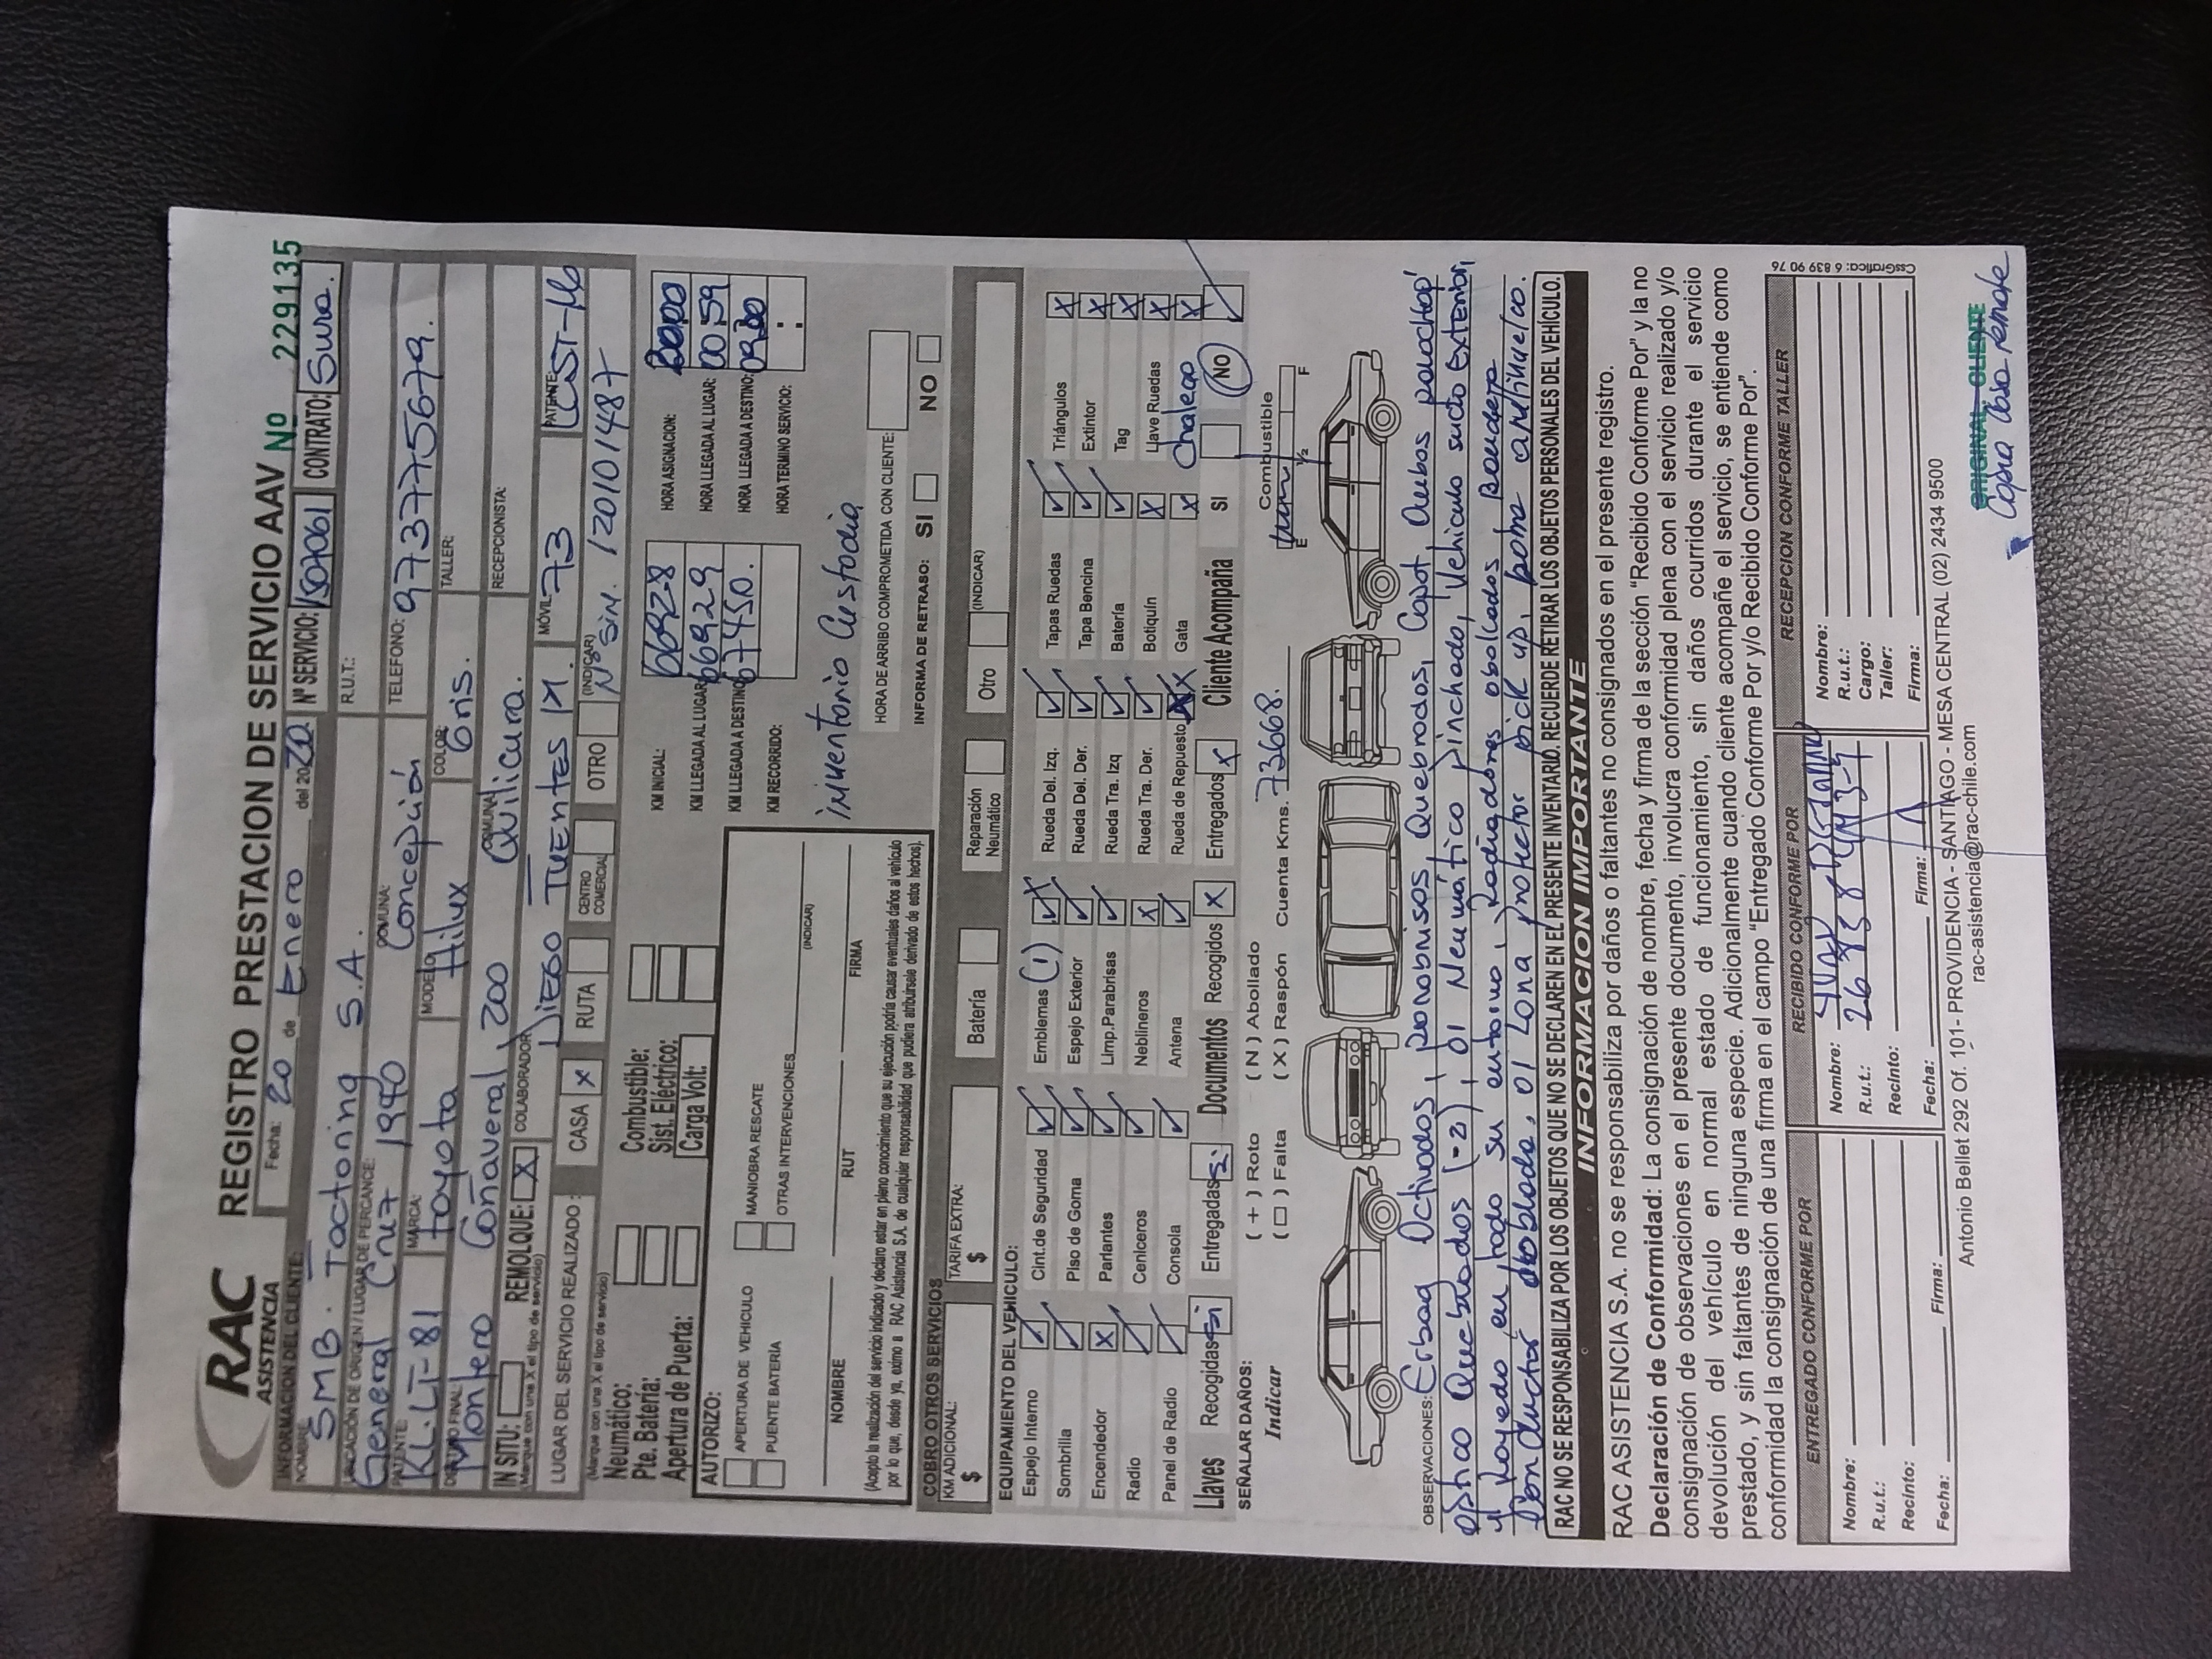 RAC
ASISTENCIA
REGISTRO PRESTACION DE SERVICIO AAV Nº 229135
Fecha: 20 de Enero del 2020 Nº SERVICIO: CONTRATO: Sura.
INFORMACION DEL CLIENTE:
NOMBRE SMB. Factoring S.A. R.U.T.:
UBICACIÓN DE ORIGEN / LUGAR DE PERCANCE: General Cruz 1940 COMUNA: Concepción TELEFONO: 973775679.
PATENTE: KL·LT-81 MARCA: toyota MODELO: Hilux COLOR: Gris. TALLER:
DESTINO FINAL: Montero Cañaveral 200 COMUNA: Quilicura. RECEPCIONISTA:
IN SITU: REMOLQUE: X COLABORADOR: DIEGO FUENTES M. MÓVIL: 73 PATENTE:
(Marque con una X el tipo de servicio)
LUGAR DEL SERVICIO REALIZADO: CASA X RUTA CENTRO COMERCIAL OTRO (INDICAR) Nº Sin. 120101487
(Marque con una X el tipo de servicio)
Neumático: Combustible:
Pte. Batería: Sist. Eléctrico:
Apertura de Puerta: Carga Volt:
KM INICIAL: 66928 HORA ASIGNACION:
KM LLEGADA AL LUGAR: 66929 HORA LLEGADA AL LUGAR: 00:59
KM LLEGADA A DESTINO: 67450. HORA LLEGADA A DESTINO:
KM RECORRIDO: HORA TERMINO SERVICIO: :
AUTORIZO:
APERTURA DE VEHICULO MANIOBRA RESCATE
PUENTE BATERÍA OTRAS INTERVENCIONES (INDICAR)
NOMBRE RUT FIRMA
(Acepto la realización del servicio indicado y declaro estar en pleno conocimiento que su ejecución podría causar eventuales daños al vehículo
por lo que, desde ya, eximo a RAC Asistencia S.A. de cualquier responsabilidad que pudiera atribuírsele derivado de estos hechos).
inventario Custodia
HORA DE ARRIBO COMPROMETIDA CON CLIENTE:
INFORMA DE RETRASO: SI NO
COBRO OTROS SERVICIOS
KM ADICIONAL: $ TARIFA EXTRA: $ Batería Reparación Neumático Otro (INDICAR)
EQUIPAMIENTO DEL VEHICULO:
Espejo Interno ✓ Cint.de Seguridad ✓ Emblemas (1) Rueda Del. Izq. ✓ Tapas Ruedas ✓ Triángulos X
Sombrilla ✓ Piso de Goma ✓ Espejo Exterior ✓ Rueda Del. Der. ✓ Tapa Bencina ✓ Extintor X
Encendedor X Parlantes ✓ Limp.Parabrisas ✓ Rueda Tra. Izq ✓ Batería ✓ Tag X
Radio ✓ Ceniceros ✓ Neblineros X Rueda Tra. Der. ✓ Botiquín X Llave Ruedas X
Panel de Radio ✓ Consola ✓ Antena ✓ Rueda de Repuesto X Gata X Chaleco X
Llaves Recogidas Si Entregadas Si Documentos Recogidos X Entregados X Cliente Acompaña SI NO
SEÑALAR DAÑOS: ( + ) Roto ( N ) Abollado
Indicar ( □ ) Falta ( X ) Raspón Cuenta Kms. 73668. Combustible
E ½ F
OBSERVACIONES: Erbag Activados, parabrisas Quebrados, Capot Ambos parachop'
optico Quebrados (-2), 01 Neumático pinchado, Vehiculo sucio Exterior,
y rayado en todo su entorno, Radiadores abollados, puerta
Conductor doblada, 01 Lona protector pick up, poma antivuelco.
RAC NO SE RESPONSABILIZA POR LOS OBJETOS QUE NO SE DECLAREN EN EL PRESENTE INVENTARIO. RECUERDE RETIRAR LOS OBJETOS PERSONALES DEL VEHÍCULO.
INFORMACION IMPORTANTE
RAC ASISTENCIA S.A. no se responsabiliza por daños o faltantes no consignados en el presente registro.
Declaración de Conformidad: La consignación de nombre, fecha y firma de la sección "Recibido Conforme Por" y la no
consignación de observaciones en el presente documento, involucra conformidad plena con el servicio realizado y/o
devolución del vehículo en normal estado de funcionamiento, sin daños ocurridos durante el servicio
prestado, y sin faltantes de ninguna especie. Adicionalmente cuando cliente acompañe el servicio, se entiende como
conformidad la consignación de una firma en el campo "Entregado Conforme Por y/o Recibido Conforme Por".
ENTREGADO CONFORME POR RECIBIDO CONFORME POR RECEPCION CONFORME TALLER
Nombre: Nombre: Nombre:
R.u.t.: R.u.t.: R.u.t.:
Recinto: Recinto: Cargo:
Fecha: Firma: Fecha: Firma: Taller:
Firma:
Antonio Bellet 292 Of. 101- PROVIDENCIA - SANTIAGO - MESA CENTRAL (02) 2434 9500
rac-asistencia@rac-chile.com
CssGrafica: 6 839 90 76
ORIGINAL: CLIENTE
Copia Casa remate